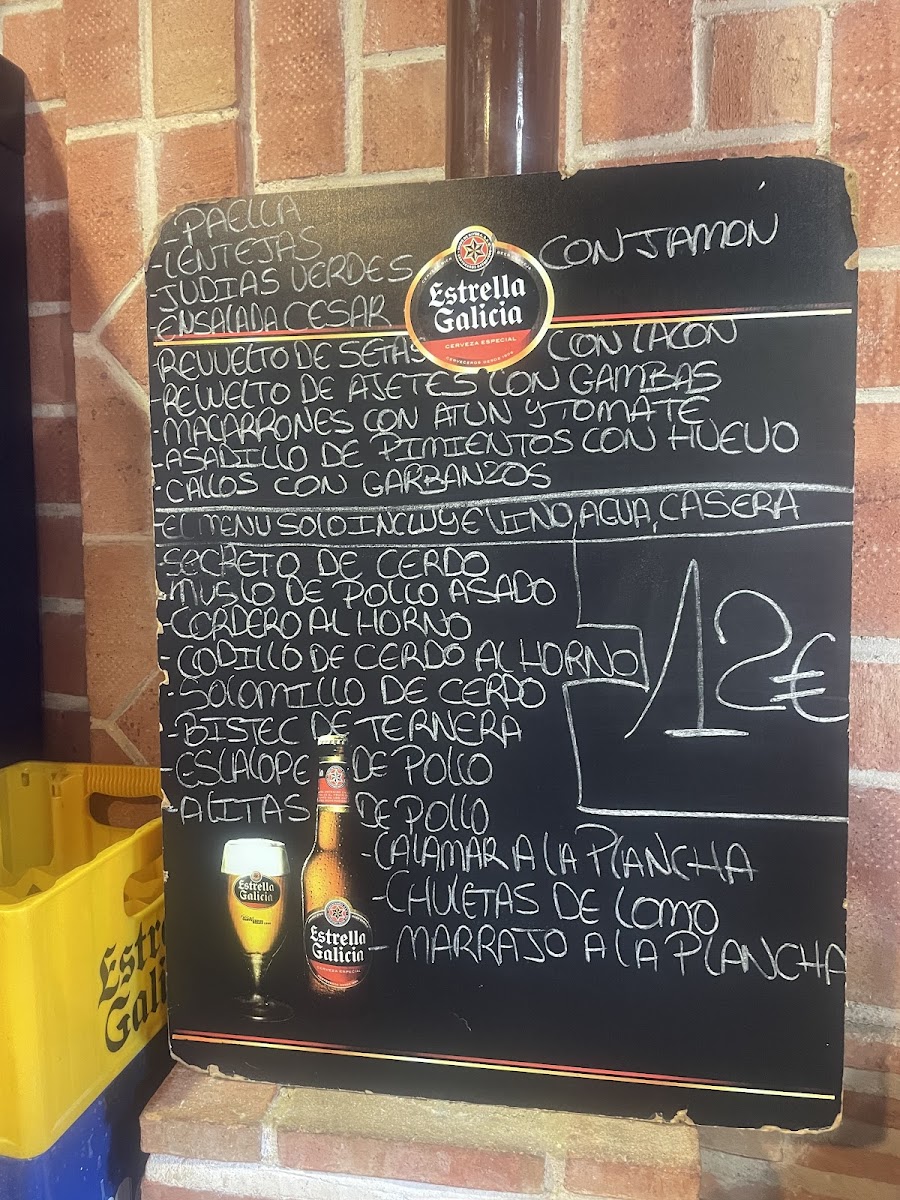 -PAELLA
-LENTEJAS
-JUDIAS VERDES CON JAMÓN
-ENSALADA CESAR
Estrella
Galicia
CERVEZA ESPECIAL
-REVUELTO DE SETAS CON LACON
-REVUELTO DE AJETES CON GAMBAS
-MACARRONES CON ATUN Y TOMATE
-ASADILLO DE PIMIENTOS CON HUEVO
-CALLOS CON GARBANZOS
EL MENU SOLO INCLUYE VINO, AGUA, CASERA
-SECRETO DE CERDO
-MUSLO DE POLLO ASADO
-CORDERO AL HORNO
-CODILLO DE CERDO AL HORNO
12€
-SOLOMILLO DE CERDO
-BISTEC DE TERNERA
-ESCALOPE DE POLLO
-ALITAS DE POLLO
-CALAMAR A LA PLANCHA
-CHULETAS DE LOMO
-MARRAJO A LA PLANCHA
Estrella
Galicia
Estrella
Galicia
CERVEZA ESPECIAL
Estre
Gali